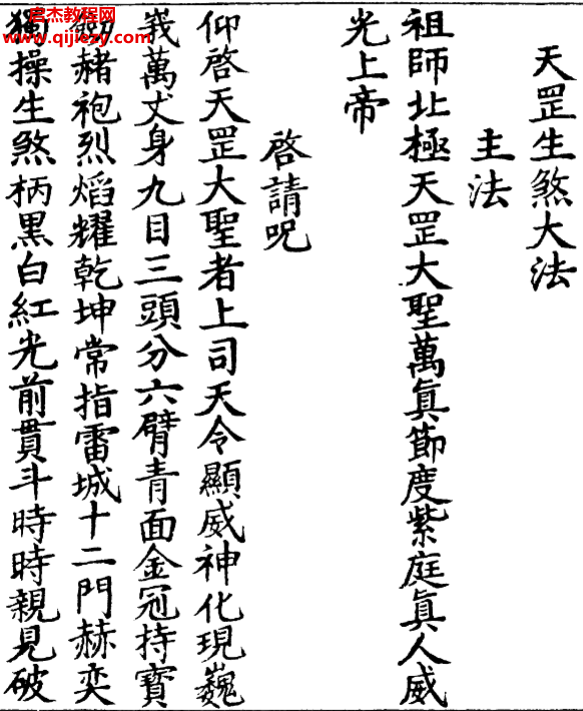 天罡生煞大法
主法
祖師北極天罡大聖萬眞節度紫庭眞人威
光上帝
啓請呪
仰啓天罡大聖者上司天令顯威神化現巍
峩萬丈身九目三頭分六臂青面金冠持寶
劒赭袍烈熖耀乾坤常指雷城十二門赫奕
獨操生煞柄黑白紅光前貫斗時時親見破
启杰教程网
www.qijiezy.com